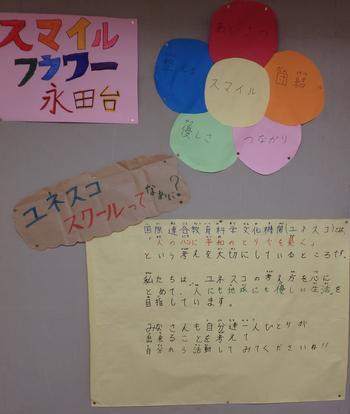 スマイル
フラワー
永田台
あいさつ
団結
スマイル
優しさ
つながり
ユネスコ
スクールって
なぁに?
国際連合教育科学文化機関(ユネスコ)とは、
「人の心に平和のとりでを築く。」
という考えを大切にしているところです。
私たちは、ユネスコの考え方を心に
とめて、人にも地球にも優しい生活を
目指しています。
みなさんも自分達一人ひとりが
出来ることを考えて
自分から活動してみてください!!